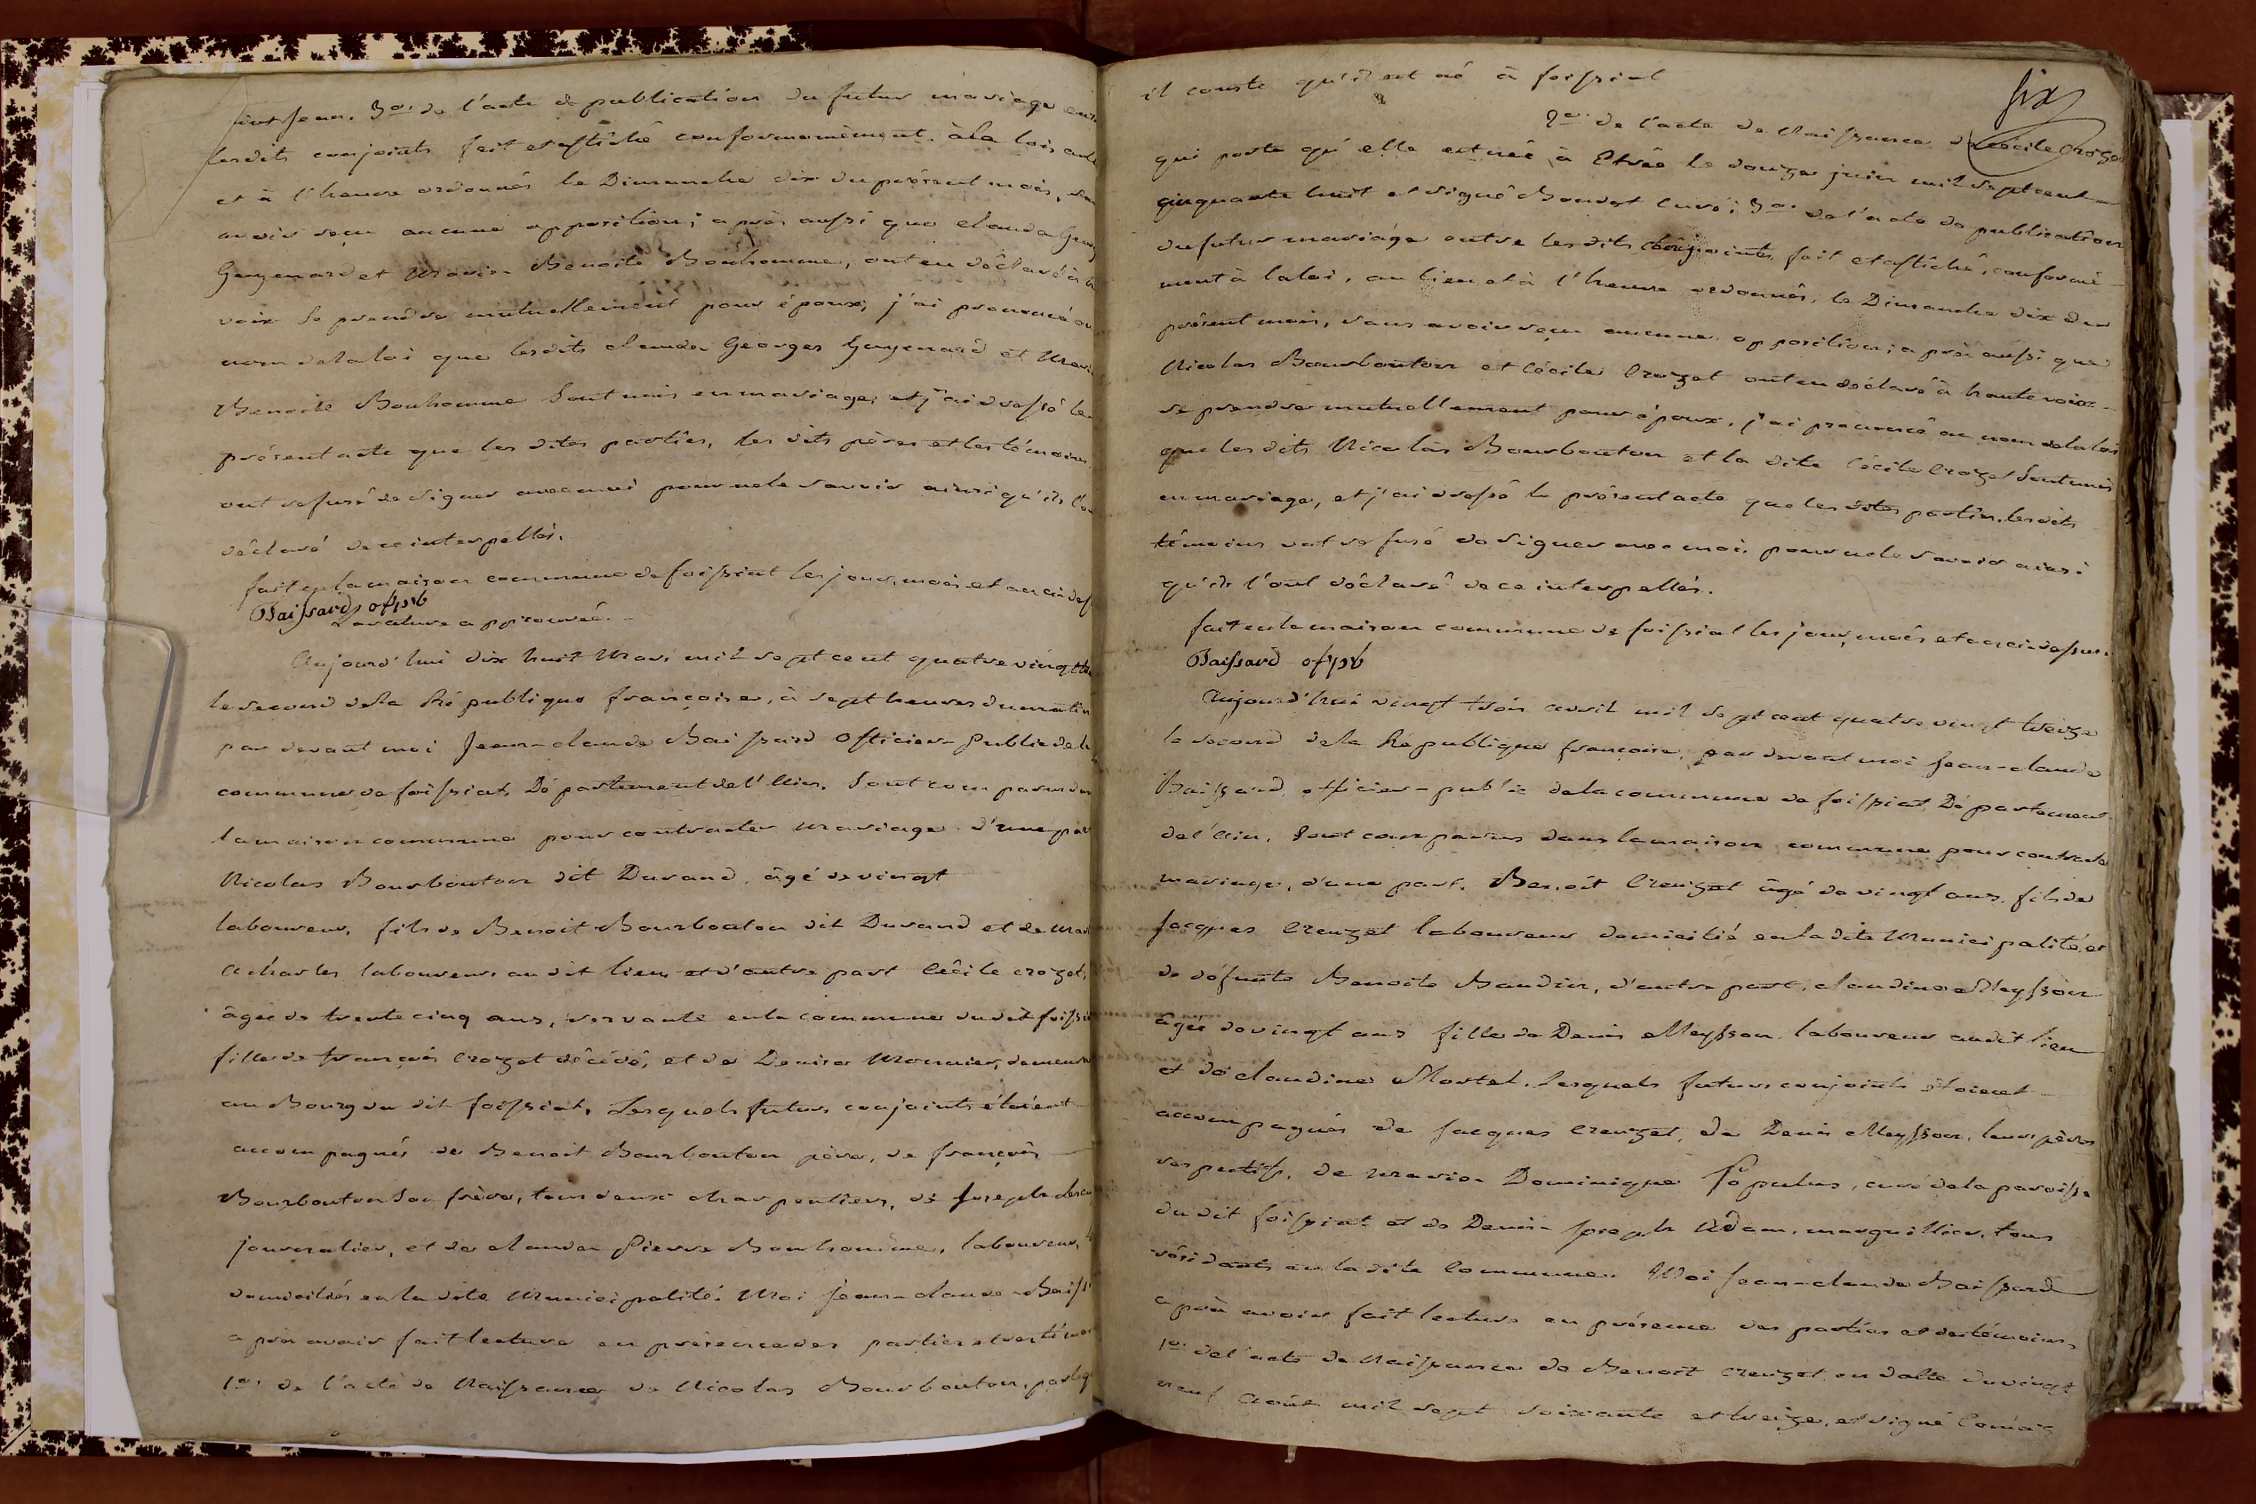 saint jean. 3.º de l'acte de publication du futur mariage
lesdits conjoints fait et affiché conformement à la loi
et à l'heure ordonnés le Dimanche dix du présent mois,
avoir reçu aucune opposition; après aussi que claude
Guyenard et Marie Benoite Bonhomme, ont eu déclaré à
voix se prendre mutuellement pour époux, j'ai prononcé
nom de la loi que lesdits claude Georges Guyenard et
Benoite Bonhomme sont unis en mariage, et j'ai dressé le
présent acte que les dites parties, les dits pères et les témoins
ont refusé de signer avec moi pour ne le savoir ainsi qu'ils
déclaré de ce interpellés.
fait en la maison commune de foissiat les jour, mois et an
Baissard offpb
rature approuvée.
Aujourd'hui dix huit Mars mil sept cent quatre vingt
le second de la République françoise, à sept heures du matin
par devant moi Jean-claude Baissard Officier Public de la
commune de foissiat, Département de l'Ain. Sont comparus
la maison commune pour contracter mariage. d'une part
Nicolas Bourbouton dit Durand, âgé de vingt
laboureur, fils de Benoit Bourbouton dit Durand et de
Acharles laboureur au dit lieu et d'autre part Cécile crozet,
âgée de trente cinq ans, servante en la commune dudit
fille de françois Crozet décédé, et de Denise Monnier,
au Bourg du dit foissiat, Lesquels futurs conjoints étoient
accompagnés de Benoit Bourbouton père, de françois
Bourbouton son frère, tous deux charpentiers, de Joseph
journalier, et de claude Pierre Bonhomme, laboureur,
domiciliés en la dite Municipalité. Moi Jean-claude
après avoir fait lecture en présence des parties et des
1.º de l'acte de Naissance de Nicolas Bourbouton,
six
il conste qu'il est né à foissiat
2.º de l'acte de Naissance de Cécile Crozet
qui porte qu'elle est née à Etrée le douze juin mil sept cent
cinquante huit et signé Bouvet curé; 3.º de l'acte de publication
du futur mariage entre les dits conjoints, fait et affiché, conformé-
ment à la loi, au lieu et à l'heure ordonnés, le Dimanche dix du
présent mois, sans avoir reçu aucune opposition; après aussi que
Nicolas Bourbouton et Cécile Crozet ont eu déclaré à haute voix
se prendre mutuellement pour époux, j'ai prononcé au nom de la loi
que les dits Nicolas Bourbouton et la dite Cécile Crozet sont unis
en mariage, et j'ai dressé le présent acte que les dites parties, les dits
témoins ont refusé de signer avec moi, pour ne le savoir ainsi
qu'ils l'ont déclaré de ce interpellés.
fait en la maison commune de foissiat les jour, mois et an ci-dessus.
Baissard offpb
Aujourd'hui vingt trois avril mil sept cent quatre vingt treize
le second de la République françoise, par devant moi Jean-claude
Baissard, officier-public de la commune de foissiat, Département
de l'Ain, Sont comparus dans la maison commune pour contracter
mariage, d'une part, Benoit Creuzet âgé de vingt ans, fils de
Jacques Creuzet laboureur domicilié en la dite Municipalité, et
de défunte Benoite Baudin, d'autre part, claudine Meysson
âgée de vingt ans fille de Denis Meysson, laboureur audit lieu
et de claudine Mortel. Lesquels futurs conjoints étoient
accompagnés de Jacques Creuzet, de Denis Meysson, leurs pères
respectifs, de Marie Dominique Populus, curé de la paroisse
du dit foissiat et de Denis Joseph Adam, marguillier, tous
résidants en la dite Commune. Moi Jean-claude Baissard
après avoir fait lecture en présence des parties et des témoins,
1.º de l'acte de Naissance de Benoit Creuzet en datte du vingt
neuf Août mil sept soixante et treize, et signé